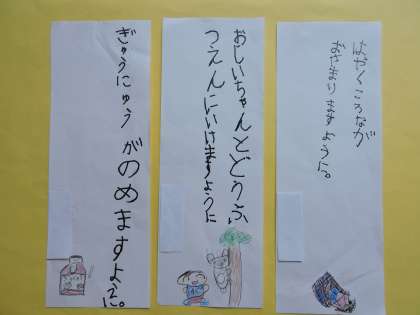 はやくころなが
おさまりますように。
おじいちゃんとどうぶ
つえんにいけますように
ぎゅうにゅう がのめますように。